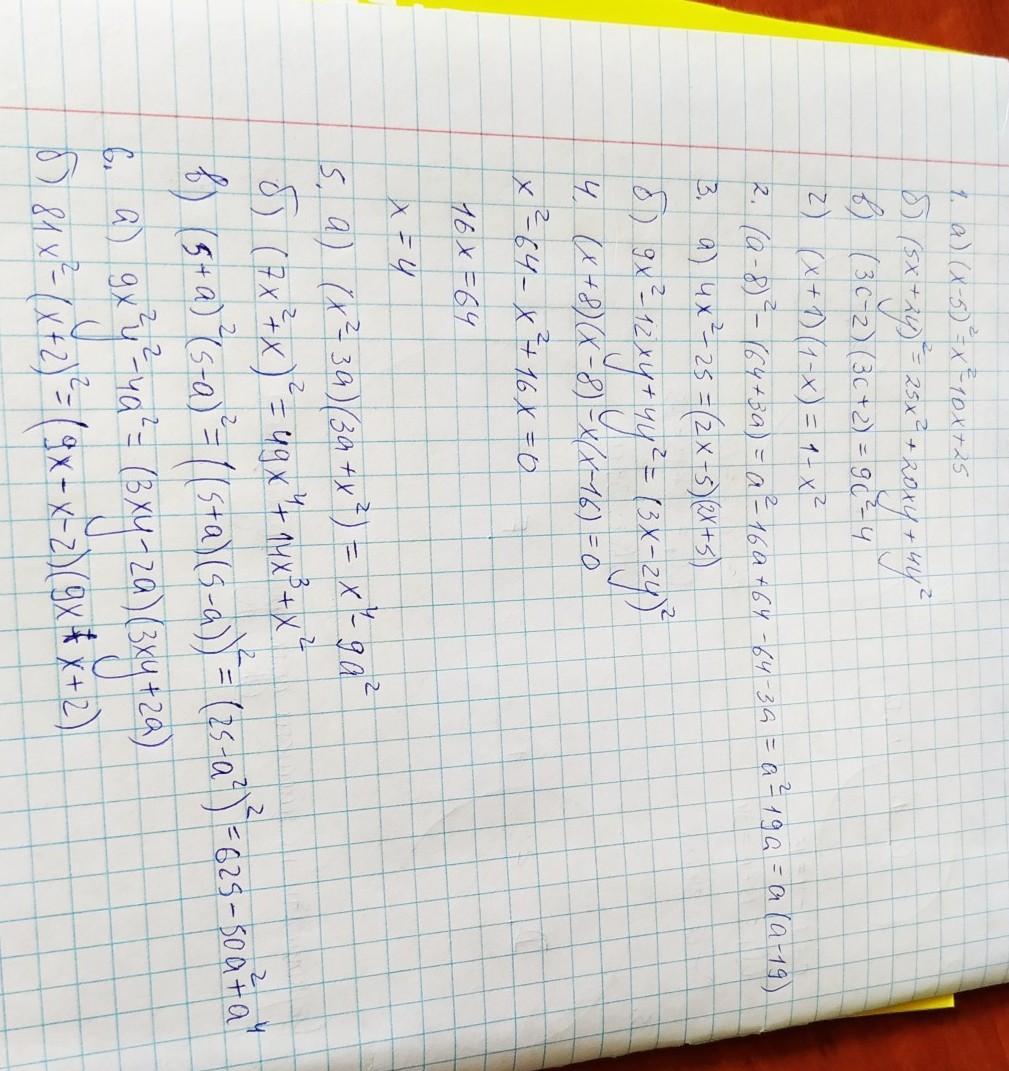 1. а) (x-5)²=x²-10x+25
б) (5x+2y)²=25x²+20xy+4y²
в) (3c-2)(3c+2)=9c²-4
г) (x+1)(1-x)=1-x²
2. (a-8)²-(64+3a)=a²-16a+64-64-3a=a²-19a=a(a-19)
3. а) 4x²-25=(2x-5)(2x+5)
б) 9x²-12xy+4y²=(3x-2y)²
4. (x+8)(x-8)-x(x-16)=0
x²-64-x²+16x=0
16x=64
x=4
5. а) (x²-3a)(3a+x²)=x⁴-9a²
б) (7x²+x)²=49x⁴+14x³+x²
в) (5+a)²(5-a)²=((5+a)(5-a))²=(25-a²)²=625-50a²+a⁴
6. а) 9x²y²-4a²=(3xy-2a)(3xy+2a)
б) 81x²-(x+2)²=(9x-x-2)(9x+x+2)